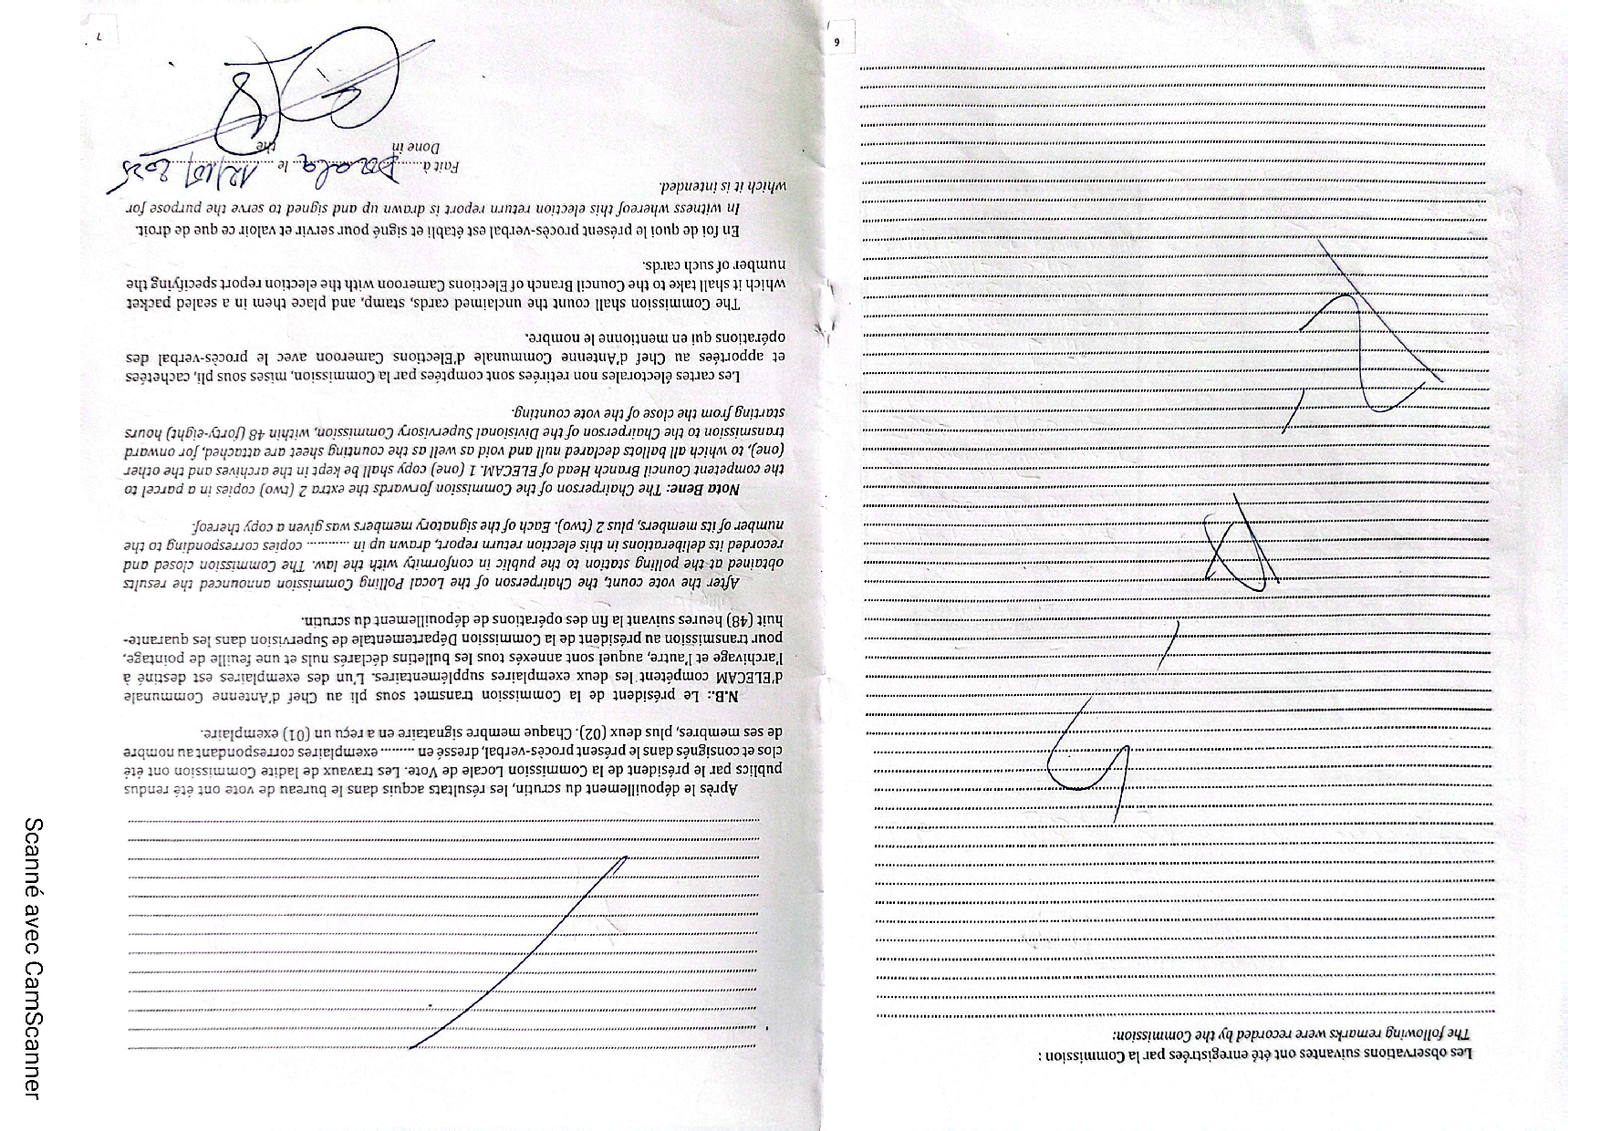 Les observations suivantes ont été enregistrées par la Commission :
The following remarks were recorded by the Commission:
6
Après le dépouillement du scrutin, les résultats acquis dans le bureau de vote ont été rendus
publics par le président de la Commission Locale de Vote. Les travaux de ladite Commission ont été
clos et consignés dans le présent procès-verbal, dressé en ......... exemplaires correspondant au nombre
de ses membres, plus deux (02). Chaque membre signataire en a reçu un (01) exemplaire.
N.B.: Le président de la Commission transmet sous pli au Chef d'Antenne Communale
d'ELECAM compétent les deux exemplaires supplémentaires. L'un des exemplaires est destiné à
l'archivage et l'autre, auquel sont annexés tous les bulletins déclarés nuls et une feuille de pointage,
pour transmission au président de la Commission Départementale de Supervision dans les quarante-
huit (48) heures suivant la fin des opérations de dépouillement du scrutin.
After the vote count, the Chairperson of the Local Polling Commission announced the results
obtained at the polling station to the public in conformity with the law. The Commission closed and
recorded its deliberations in this election return report, drawn up in ........... copies corresponding to the
number of its members, plus 2 (two). Each of the signatory members was given a copy thereof.
Nota Bene: The Chairperson of the Commission forwards the extra 2 (two) copies in a parcel to
the competent Council Branch Head of ELECAM. 1 (one) copy shall be kept in the archives and the other
(one), to which all ballots declared null and void as well as the counting sheet are attached, for onward
transmission to the Chairperson of the Divisional Supervisory Commission, within 48 (forty-eight) hours
starting from the close of the vote counting.
Les cartes électorales non retirées sont comptées par la Commission, mises sous pli, cachetées
et apportées au Chef d'Antenne Communale d'Elections Cameroon avec le procès-verbal des
opérations qui en mentionne le nombre.
The Commission shall count the unclaimed cards, stamp, and place them in a sealed packet
which it shall take to the Council Branch of Elections Cameroon with the election report specifying the
number of such cards.
En foi de quoi le présent procès-verbal est établi et signé pour servir et valoir ce que de droit.
In witness whereof this election return report is drawn up and signed to serve the purpose for
which it is intended.
Fait à Douala le 12/10/2025
Done in the
7
Scanné avec CamScanner